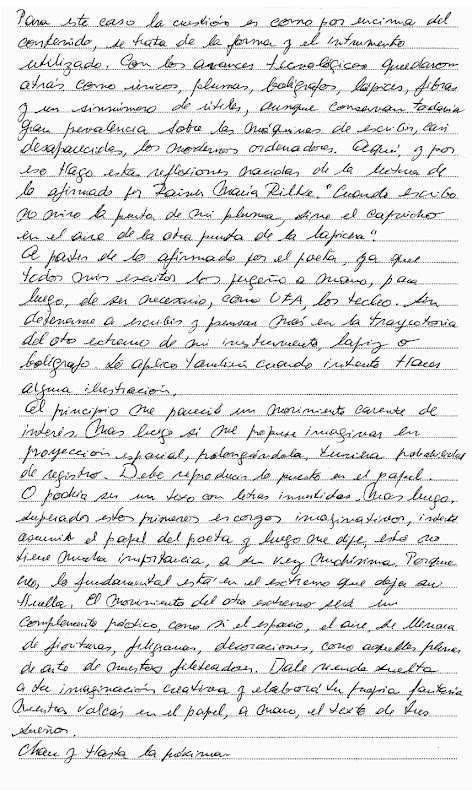 Para este caso la cuestión es como por encima del
contenido, se trata de la forma y el instrumento
utilizado. Con los avances tecnológicos quedaron
atrás como únicos, plumas, bolígrafos, lápices, fibras
y un sinnúmero de útiles, aunque conservan todavía
gran prevalencia sobre las máquinas de escribir, casi
desaparecidas, los modernos ordenadores. Aquí, y por
eso hago estas reflexiones nacidas de la lectura de
lo afirmado por Rainer María Rilke. "Cuando escribo
no miro la punta de mi pluma, sino el capricho
en el aire de la otra punta de la lapicera".
A partir de lo afirmado por el poeta, ya que
todos mis escritos los pergeño a mano, para
luego, de ser necesario, como UFA, los tecleo. Sin
detenerme a escribir y pensar más en la trayectoria
del otro extremo de mi instrumento, lápiz o
bolígrafo. Lo aplico también cuando intento hacer
alguna ilustración.
Al principio me pareció un movimiento carente de
interés. Mas luego si me propuse imaginar en
proyección espacial, prolongándola, tuviera probabilidad
de registro. Debe reproducir lo puesto en el papel.
O podría ser un texto con letras invertidas. Mas luego,
superados estos primeros escorzos imaginativos, intenté
asumir el papel del poeta y luego me dije, esto no
tiene mucha importancia, a su vez muchísima. Porque
creo, lo fundamental está en el extremo que deja su
huella. El movimiento del otro extremo será un
complemento poético, como si el espacio, el aire, se llenara
de florituras, filigranas, decoraciones, como aquellas plenas
de arte de nuestros fileteadores. Dale rienda suelta
a tu imaginación creativa y elaborá tu propia fantasía
mientras volcás en el papel, a mano, el texto de tus
sueños.
Chau y hasta la próxima